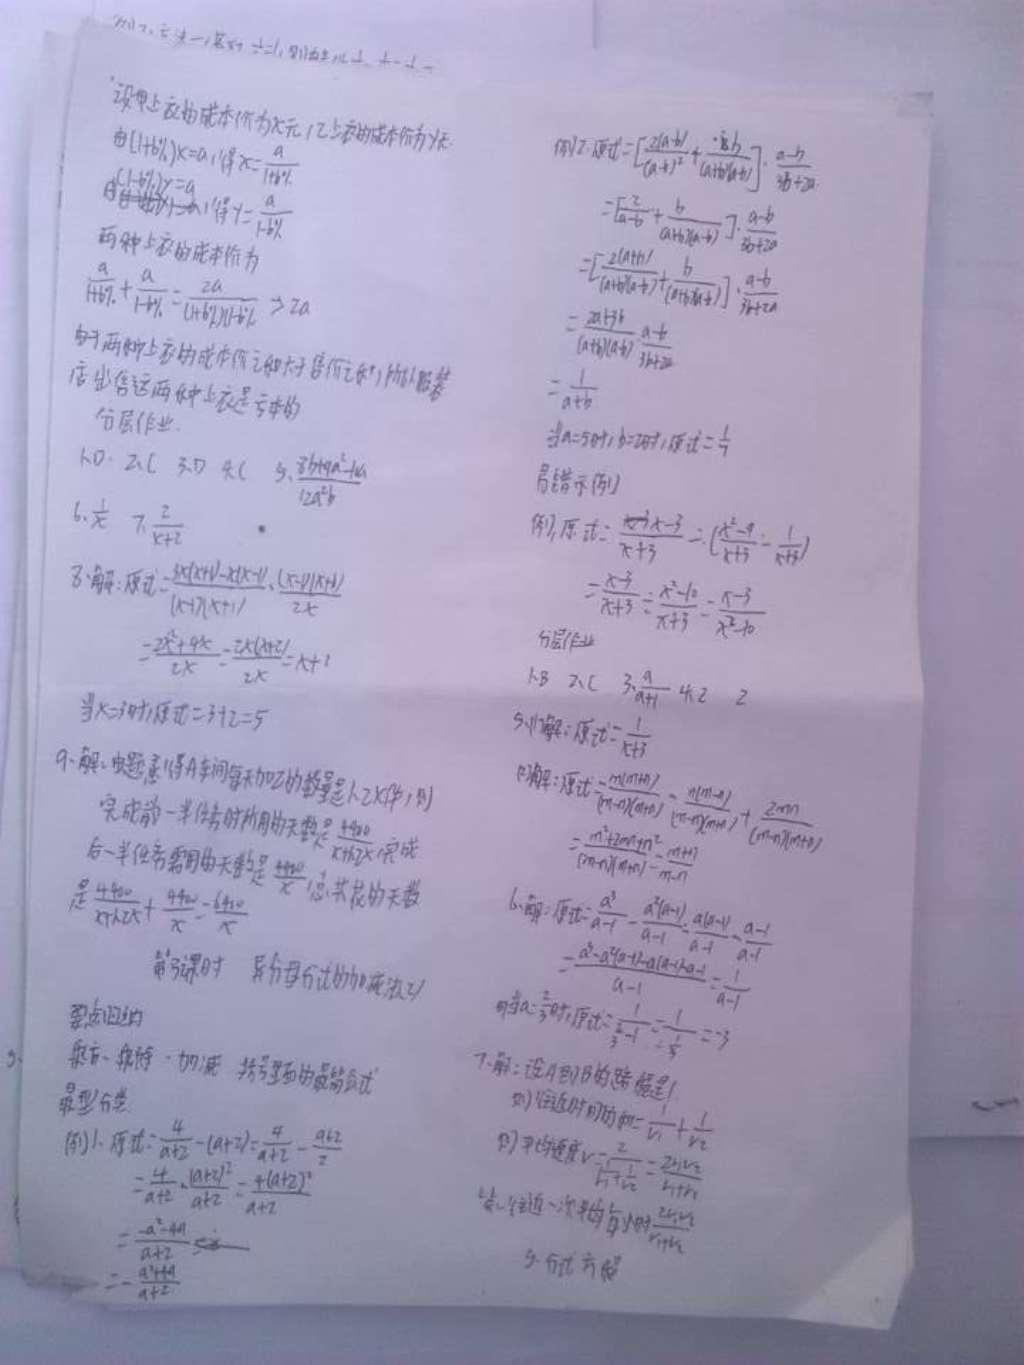 设甲上衣的成本价为x元,乙上衣的成本价为y元.
由(1+b%)x=a,得x=a/(1+b%)
(1-b%)y=a
得y=a/(1-b%)
两种上衣的成本价为
a/(1+b%)+a/(1-b%)=2a/((1+b%)(1-b%))>2a
由于两种上衣的成本价之和大于售价之和,所以服装
店出售这两种上衣是亏本的
分层作业.
1.D. 2.C 3.D 4.C
6.1/x 7.2/(x+2)
8.解:原式=
=(2x²+4x)/2x=2x(x+2)/2x=x+2
当x=3时,原式=3+2=5
9.解:由题意得A车间每天加工的数量是1.2x件,则
完成前一半任务时所用的天数是4400/(x+1.2x),完成
后一半任务需用的天数是4400/x,总共花的天数
是4400/(x+1.2x)+4400/x=6400/x
第3课时 异分母分式的加减法(2)
要点回顾
乘方、乘除、加减 括号里面的 最简分式
题型分类
例1.原式=4/(a+2)-(a+2)=4/(a+2)-(a+2)/2
=4/(a+2)·(a+2)²/(a+2)=4(a+2)²/(a+2)
=(-a²-4a)/(a+2)
=-(a²+4a)/(a+2)
例2.原式=[2(a-b)/(a-b)²+b/((a+b)(a-b))]·(a-b)/(3b+2a)
=[2/(a-b)+b/((a+b)(a-b))]·(a-b)/(3b+2a)
=[2(a+b)/((a+b)(a-b))+b/((a+b)(a-b))]·(a-b)/(3b+2a)
=(2a+3b)/((a+b)(a-b))·(a-b)/(3b+2a)
=1/(a+b)
当a=5时,b=2时,原式=1/7
易错示例
例3,原式=(x-3)/(x+3)÷((x²-9)/(x+3)-1/(x+3))
=(x-3)/(x+3)÷(x²-10)/(x+3)=(x-3)/(x²-10)
分层作业
1.B 2.C 3.a/(a+1) 4.2 2
5.(1)解:原式=1/(x+3)
(2)解:原式=m(m+n)/((m-n)(m+n))-n(m-n)/((m-n)(m+n))+2mn/((m-n)(m+n))
=(m²+2mn+n²)/((m-n)(m+n))=(m+n)/(m-n)
6.解:原式=a³/(a-1)-a²(a-1)/(a-1)-a(a-1)/(a-1)-(a-1)/(a-1)
=(a³-a²(a-1)-a(a-1)-a-1)/(a-1)=1/(a-1)
当a=2/3时,原式=1/(2/3-1)= =-3
7.解:设A到B的路程是1
则往返时间的和=1/v₁+1/v₂
则平均速度v=2/(1/v₁+1/v₂)=2v₁v₂/(v₁+v₂)
答:往返一次平均每小时2v₁v₂/(v₁+v₂)
5.分式方程